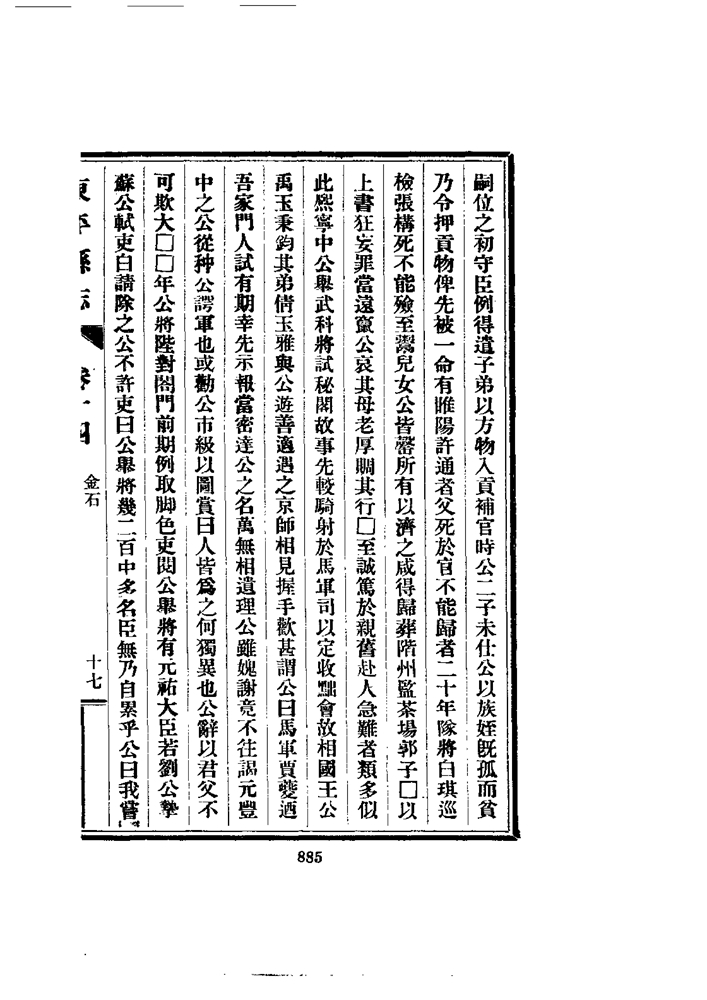 嗣位之初守臣例得遣子弟以方物入貢補官時公二子未仕公以族姪旣孤而貧
乃令押貢物俾先被一命有睢陽許通者父死於官不能歸者二十年隊將白琪巡
檢張構死不能殮至鬻兒女公皆罄所有以濟之咸得歸葬階州監茶場郭子□以
上書狂妄罪當遠竄公哀其母老厚賙其行□至誠篤於親舊赴人急難者類多似
此熙寧中公舉武科將試秘閣故事先較騎射於馬軍司以定收黜會故相國王公
禹玉秉鈞其弟倩玉雅與公遊善適遇之京師相見握手歡甚謂公曰馬軍賈夔迺
吾家門人試有期幸先示報當密達公之名萬無相遺理公雖媿謝竟不往謁元豐
中之公從种公諤軍也或勸公市級以圖賞曰人皆爲之何獨異也公辭以君父不
可欺大□□年公將陛對閤門前期例取脚色吏閱公舉將有元祐大臣若劉公摯
蘇公軾吏白請除之公不許吏曰公舉將幾二百中多名臣無乃自累乎公曰我嘗
東平縣志 卷十四 金石 十七
885